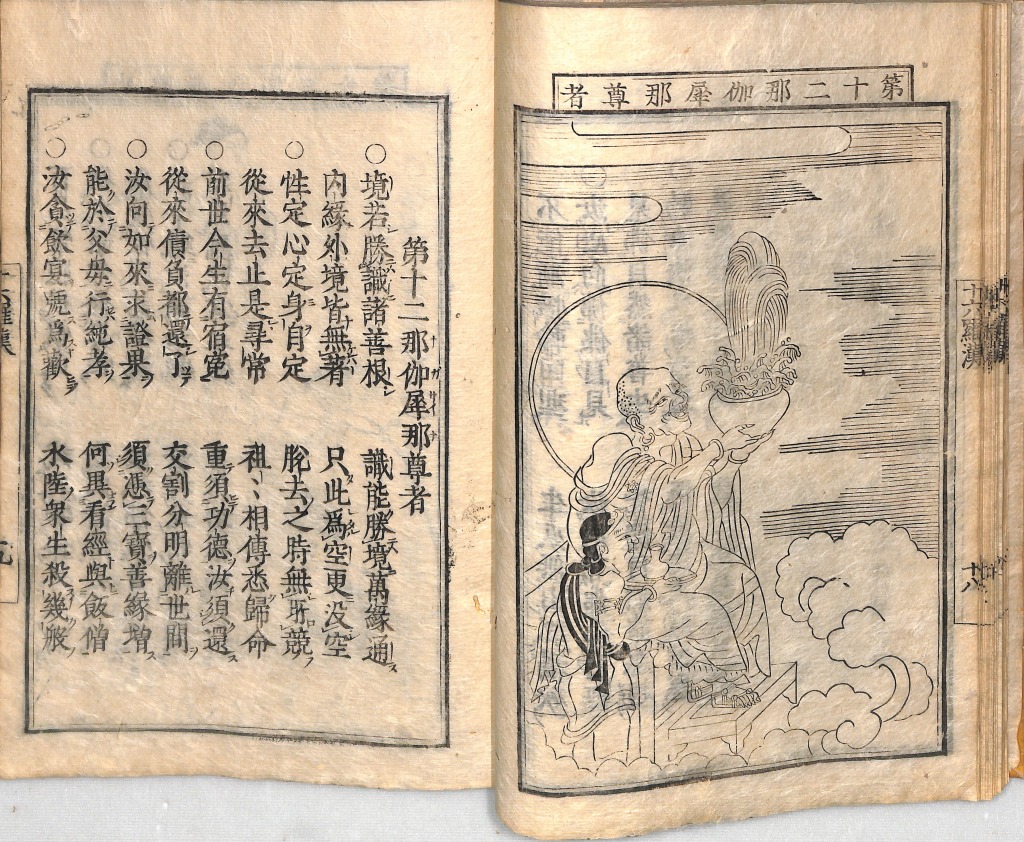 第十二那伽犀那尊者
十六羅漢
十八
第十二那伽犀那尊者
○境若勝識諸善根 識能勝境萬緣通
内緣外境皆無著 只此爲空更没空
○性定心定身自定 脫去之時無所競
從來去止是尋常 祖〻相傳悉歸命
○前世今生有宿寃 重須功德汝須還
○從來債負都還了 交割分明離世間
○汝向如來求證果 須憑三寶善緣增
○能於父母行純孝 何異看經與飯僧
○汝貪飲宴 爲歡 水陸衆生殺幾般